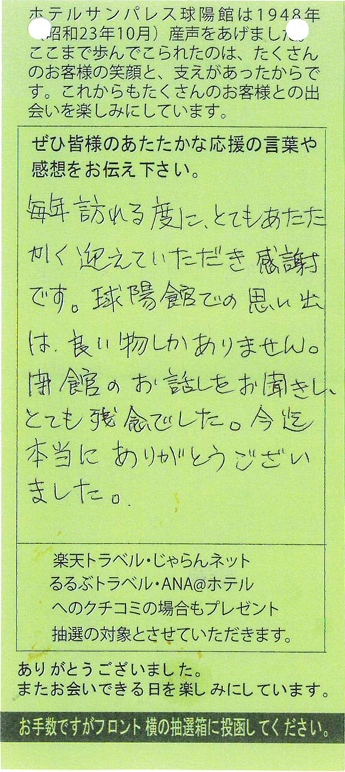 ホテルサンパレス球陽館は1948年
（昭和23年10月）産声をあげました。
ここまで歩んでこられたのは、たくさん
のお客様の笑顔と、支えがあったからで
す。これからもたくさんのお客様との出
会いを楽しみにしています。
ぜひ皆様のあたたかな応援の言葉や
感想をお伝え下さい。
毎年訪れる度に、とてもあたた
かく迎えていただき感謝
です。球陽館での思い出
は、良い物しかありません。
閉館のお話しをお聞きし、
とても残念でした。今迄
本当にありがとうござい
ました。
楽天トラベル・じゃらんネット
るるぶトラベル・ANA@ホテル
へのクチコミの場合もプレゼント
抽選の対象とさせていただきます。
ありがとうございました。
またお会いできる日を楽しみにしています。
お手数ですがフロント横の抽選箱に投函してください。